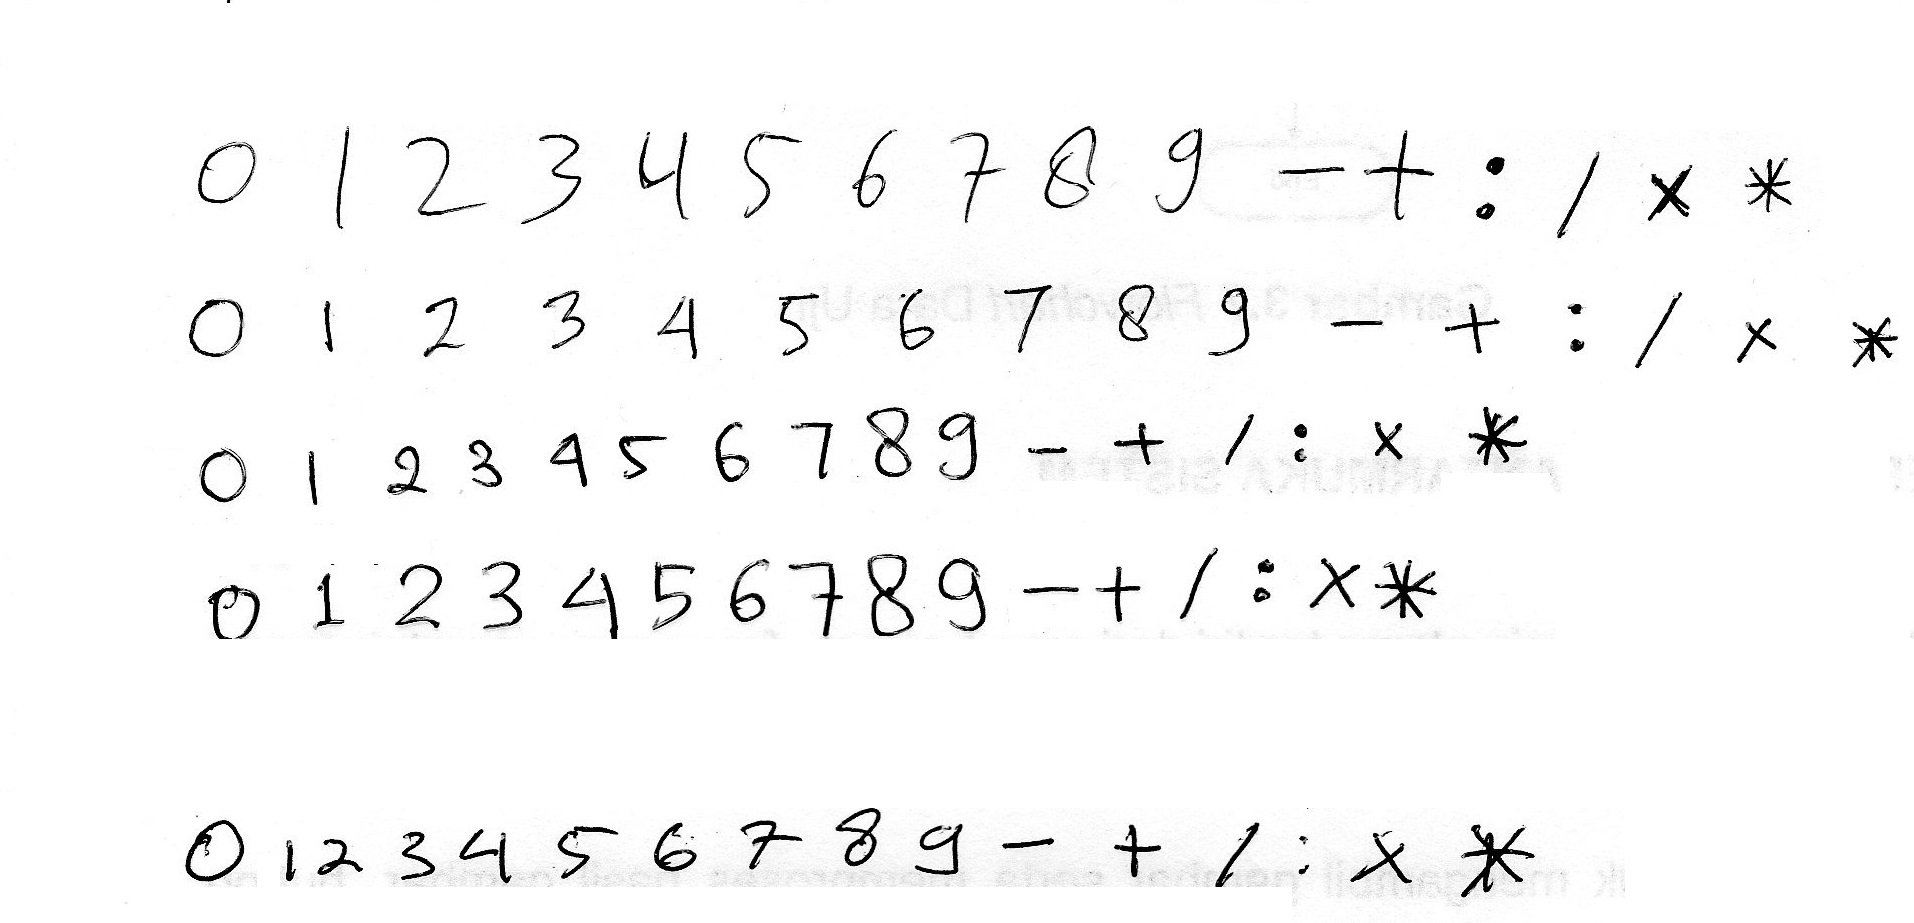 0 1 2 3 4 5 6 7 8 9 - + : / x *
0 1 2 3 4 5 6 7 8 9 - + : / x *
0 1 2 3 4 5 6 7 8 9 - + / : x *
0 1 2 3 4 5 6 7 8 9 - + / : x *
0 1 2 3 4 5 6 7 8 9 - + / : x *